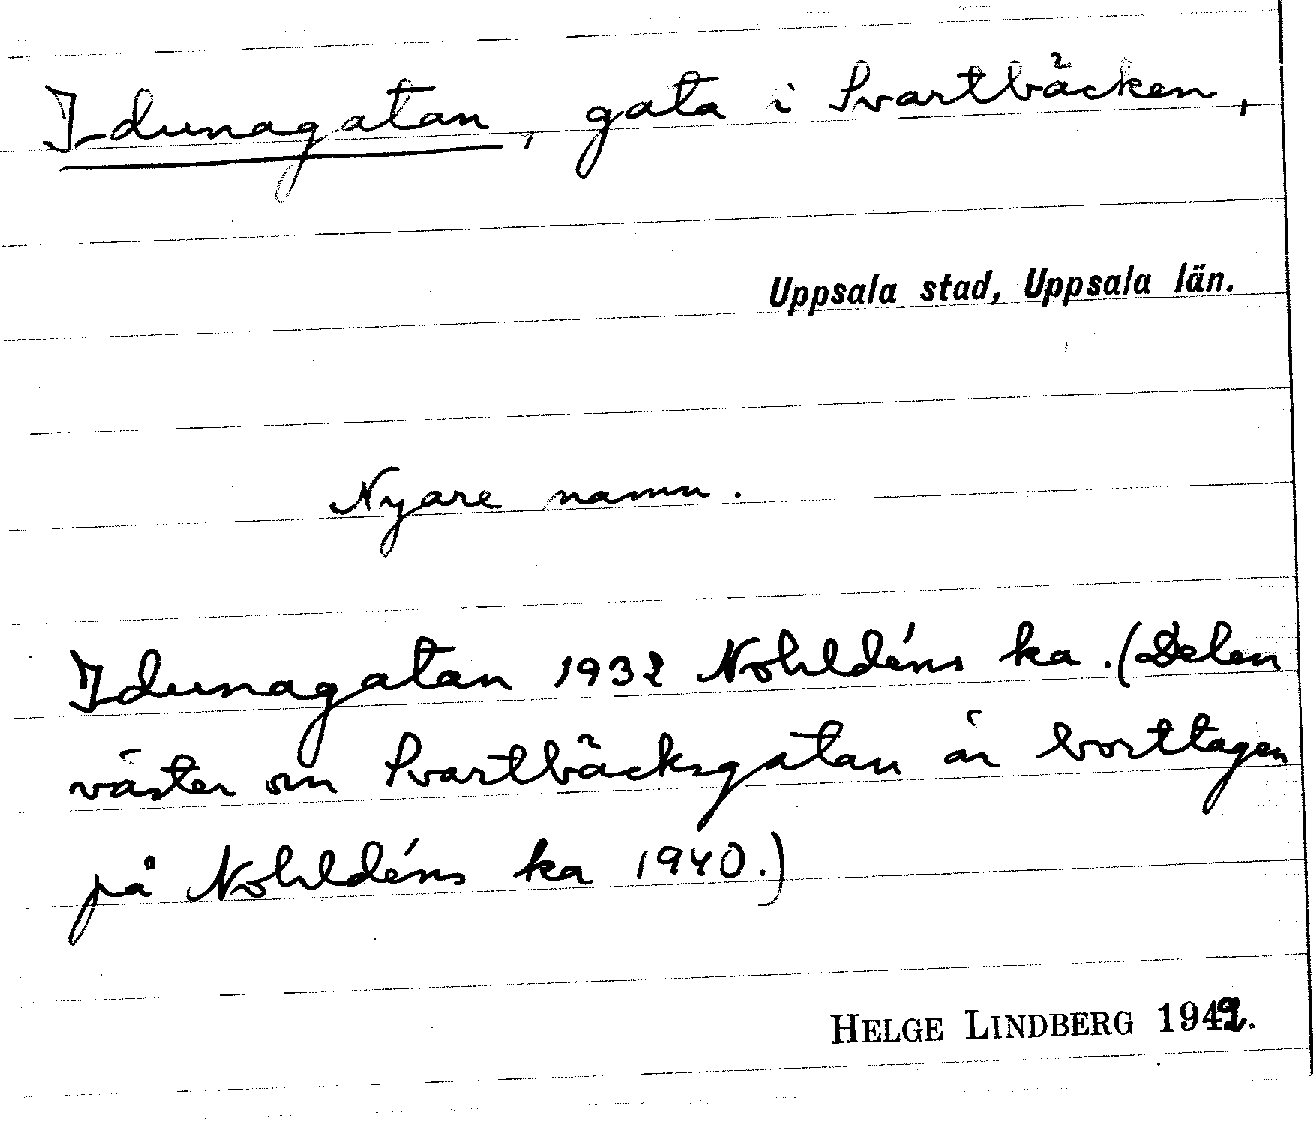 Idunagatan, gata i Svartbäcken,
Uppsala stad, Uppsala län.
Nyare namn.
Idunagatan 1932 Nohldéns ka. (Delen
väster om Svartbäcksgatan är borttagen
på Nohldéns ka 1940.)
HELGE LINDBERG 1942.